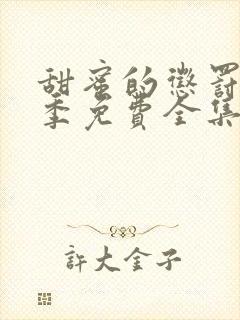 甜蜜的懲罰
季免費全集
許大金子